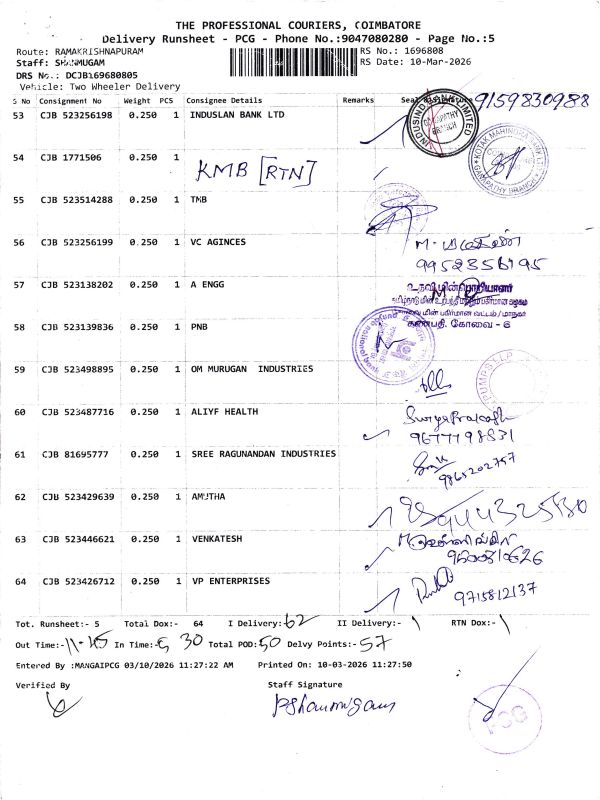 THE PROFESSIONAL COURIERS, COIMBATORE
Delivery Runsheet - PCG - Phone No.:9047080280 - Page No.:5
Route: RAMAKRISHNAPURAM RS No.: 1696808
Staff: SHANMUGAM RS Date: 10-Mar-2026
DRS No.: DCJB169680805
Vehicle: Two Wheeler Delivery
S No Consignment No Weight PCS Consignee Details Remarks Seal & Signature 9159830988
53 CJB 523256198 0.250 1 INDUSLAN BANK LTD
INDUSIND BANK LIMITED GANAPATHY BRANCH
54 CJB 1771506 0.250 1 KMB [RTN]
KOTAK MAHINDRA BANK LTD GANAPATHY BRANCH
55 CJB 523514288 0.250 1 TMB
56 CJB 523256199 0.250 1 VC AGINCES
9952356195
57 CJB 523138202 0.250 1 A ENGG
உதவி மின் பொறியாளர்
கணபதி. கோவை - 6
58 CJB 523139836 0.250 1 PNB
59 CJB 523498895 0.250 1 OM MURUGAN INDUSTRIES
PUMPS LLP
60 CJB 523487716 0.250 1 ALIYF HEALTH
SuryaPrakash
9677198831
61 CJB 81695777 0.250 1 SREE RAGUNANDAN INDUSTRIES
9865202757
62 CJB 523429639 0.250 1 AMUTHA
9443325530
63 CJB 523446621 0.250 1 VENKATESH
9600810626
64 CJB 523426712 0.250 1 VP ENTERPRISES
9715812137
Tot. Runsheet:- 5 Total Dox:- 64 I Delivery:- 62 II Delivery:- \ RTN Dox:- \
Out Time:- 11-45 In Time:- 5 30 Total POD: 50 Delvy Points:- 57
Entered By :MANGAIPCG 03/10/2026 11:27:22 AM Printed On: 10-03-2026 11:27:50
Verified By Staff Signature
PShanmugam
PCG